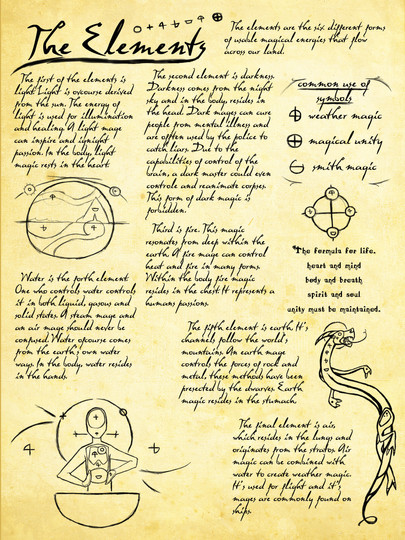 The Elements
The elements are the six different forms
of usable magical energies that flow
across our land.
The first of the elements is
light. Light is ovcourse derived
from the sun. The energy of
light is used for illumination
and healing. A light mage
can inspire and ignight
passion. In the body, light
magic rests in the heart.
The second element is darkness.
Darkness comes from the night
sky and in the body, resides in
the head. Dark mages can cure
people from mental illness and
are often used by the police to
catch liars. Due to the
capabilities of control of the
brain, a dark master could even
controle and reanimate corpses.
This form of dark magic is
forbidden.
common use of
symbols
weather magic
magical unity
smith magic
Third is fire. This magic
resonates from deep within the
earth. A fire mage can control
heat and fire in many forms.
Within the body fire magic
resides in the chest. It represents a
humans passions.
The formula for life.
heart and mind
body and breath
spirit and soul
unity must be maintained.
Water is the forth element.
One who controls water controls
it in both liquid, gasous and
solid states. A steam mage and
an air mage should never be
confused. Water ofcourse comes
from the earth's own water
ways. In the body, water resides
in the hands.
The fifth element is earth. It's
channels follow the world's
mountains. An earth mage
controls the forces of rock and
metal, these methods have been
presected by the dwarves. Earth
magic resides in the stomach.
The final element is air,
which resides in the lungs and
originates from the stratos. Air
magic can be combined with
water to create weather magic.
It's used for flight and it's
mages are commonly found on
ships.